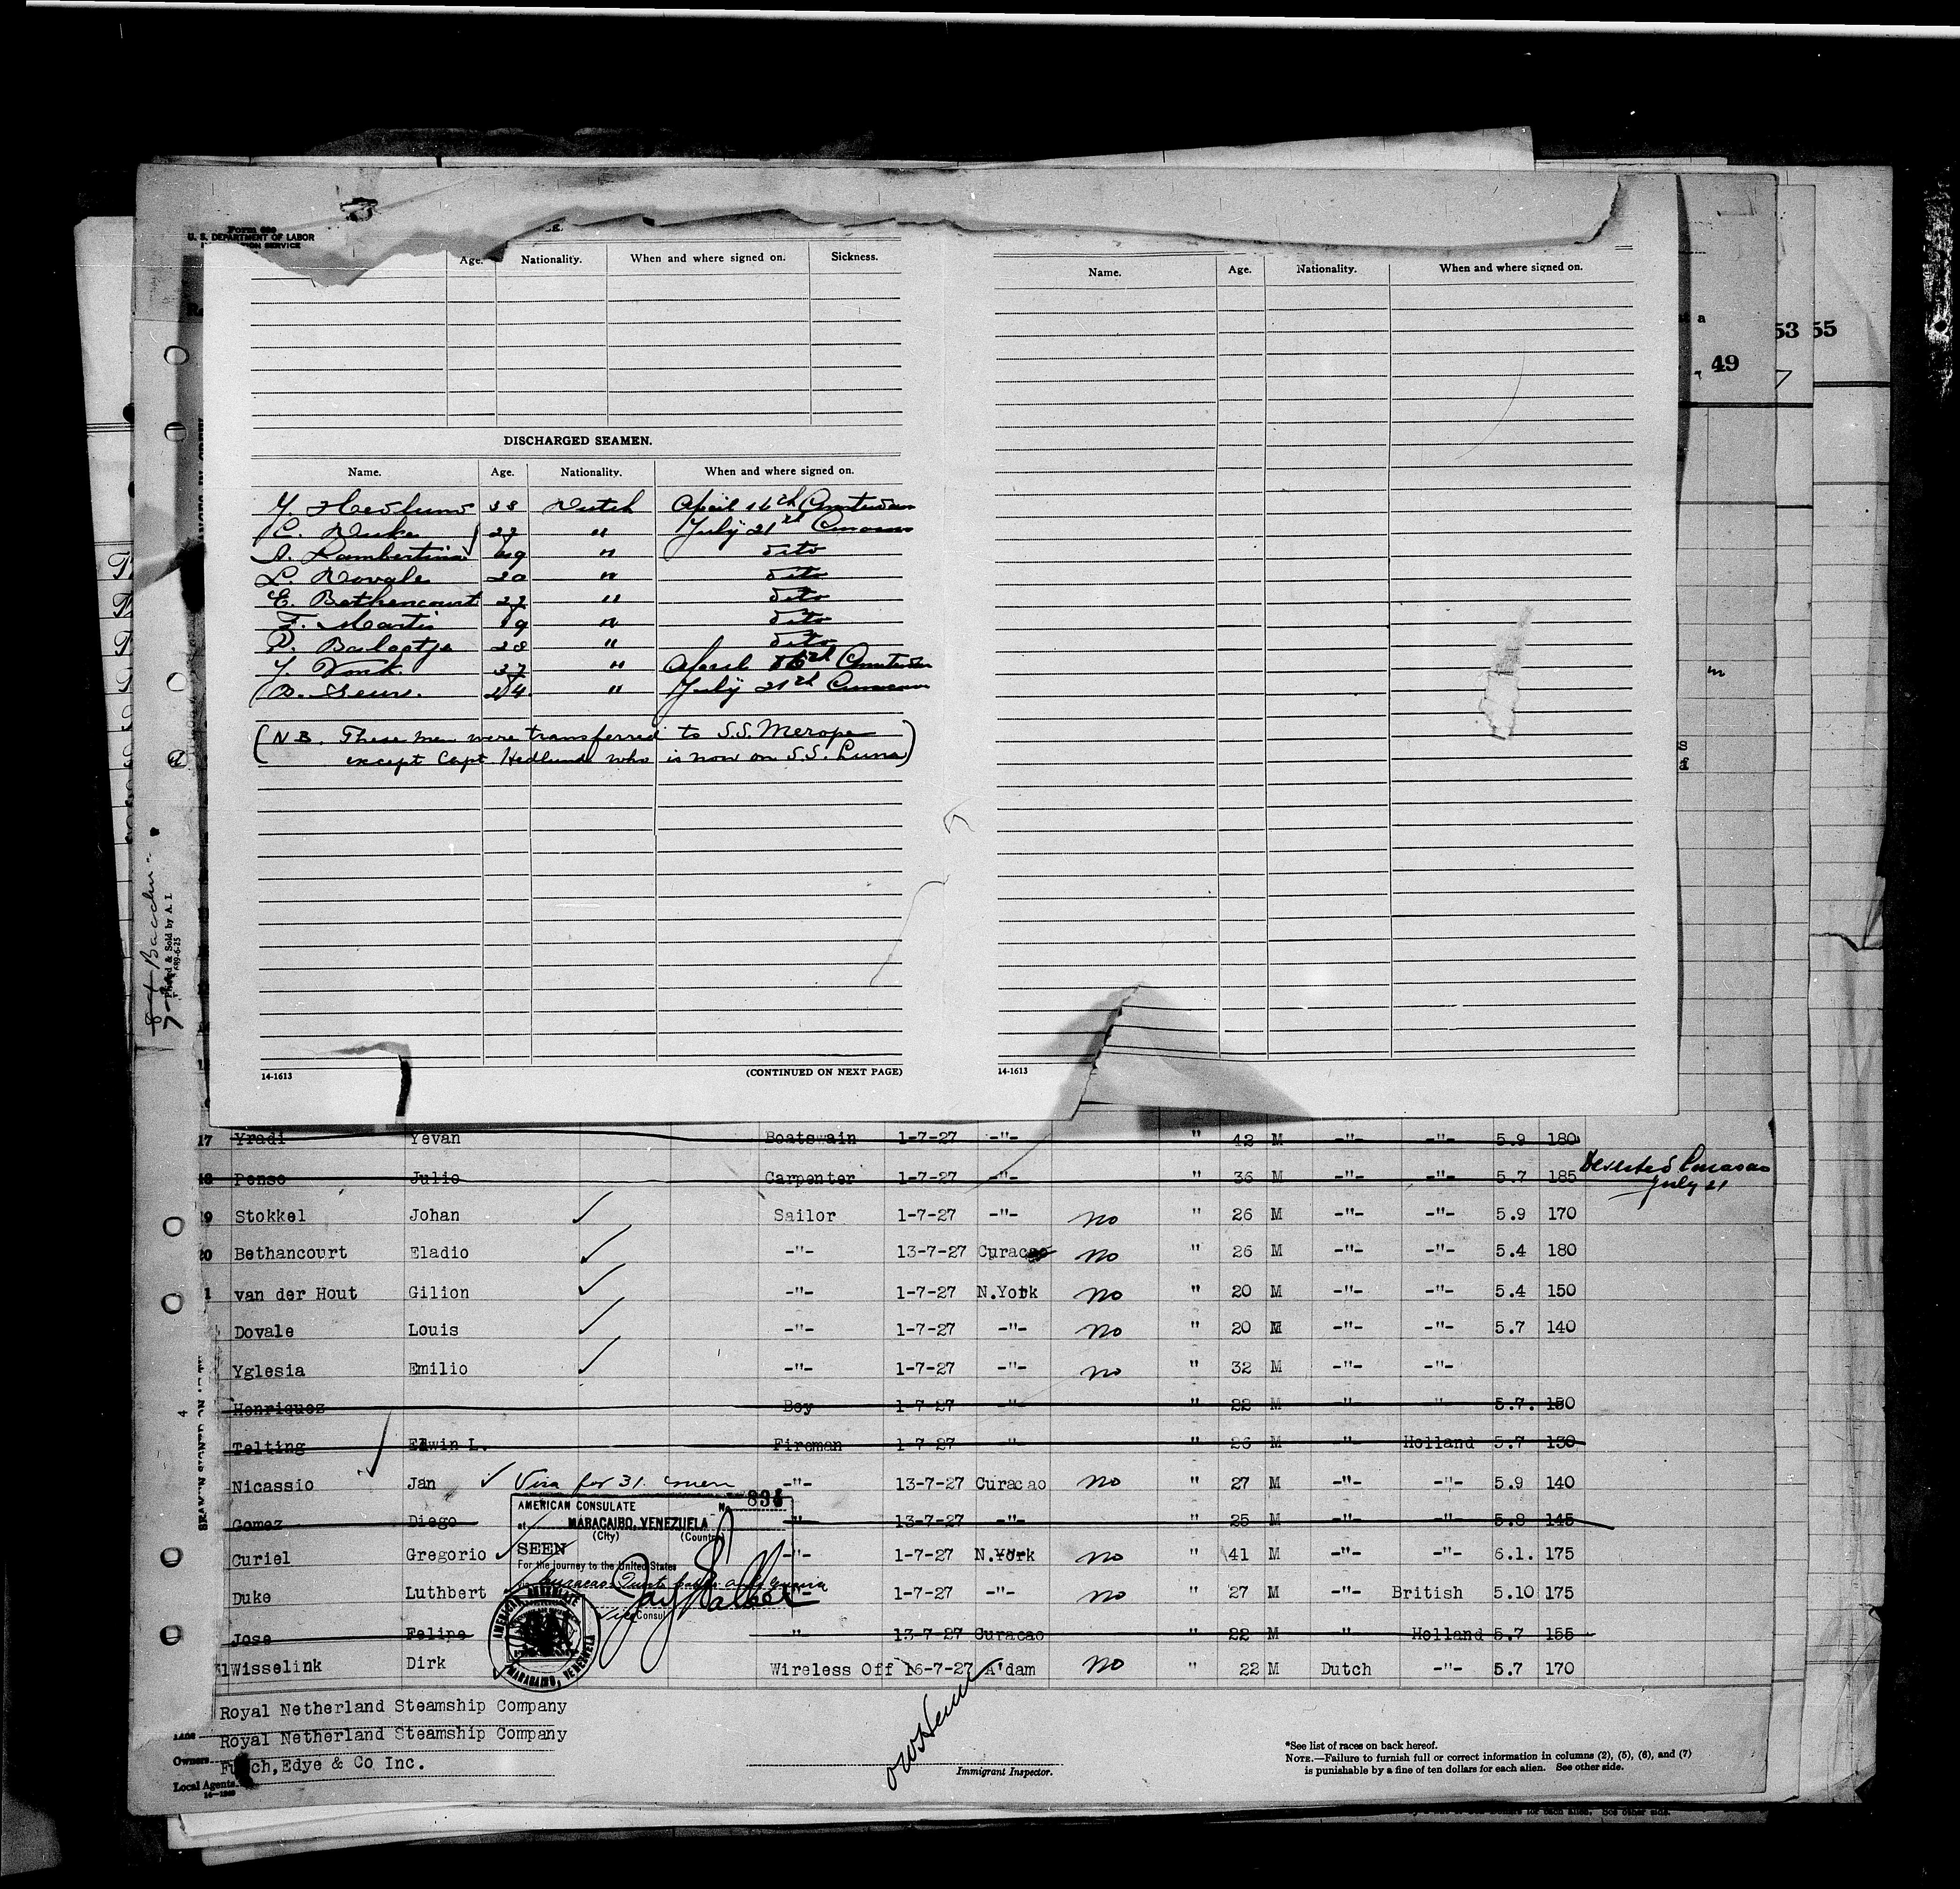 Form 689
U. S. DEPARTMENT OF LABOR
SERVICE
Age. Nationality. When and where signed on. Sickness.
DISCHARGED SEAMEN.
Name. Age. Nationality. When and where signed on.
Y. Hedlund 38 Dutch April 16th Amsterdam
C. Duke 27 " July 21st Curacao
A. Lambertina 49 " dito
L. Dovale 20 " dito
E. Bethencourt 27 " dito
F. Martis 19 " dito
P. Balootje 28 " dito
Y. Vonk. 37 " April Amsterdam
24 " July 21th Curacao
(N B. These men were transferred to S.S. Merope
except Capt. Hedlund who is now on S.S. Luna)
14-1613 (CONTINUED ON NEXT PAGE)
Name. Age. Nationality. When and where signed on.
14-1613
49
53
55
17 Yradi Yevan Boatswain 1-7-27 -"- " 42 M -"- -"- 5.9 180
18 Penso Julio Carpenter 1-7-27 -"- " 36 M -"- -"- 5.7 185 Deserted Curacao
July 21
19 Stokkel Johan Sailor 1-7-27 -"- no " 26 M -"- -"- 5.9 170
20 Bethancourt Eladio -"- 13-7-27 Curacao no " 26 M -"- -"- 5.4 180
1 van der Hout Gilion -"- 1-7-27 N.York no " 20 M -"- -"- 5.4 150
Dovale Louis -"- 1-7-27 -"- no " 20 M -"- -"- 5.7 140
Yglesia Emilio -"- 1-7-27 -"- no " 32 M -"- -"-
Henriquez Boy 1-7-27 -"- " 22 M -"- -"- 5.7. 150
Telting Edwin L. Fireman 1-7-27 -"- " 26 M -"- Holland 5.7 130
Nicassio Jan Visa for 31. men -"- 13-7-27 Curacao no " 27 M -"- -"- 5.9 140
Gomez Diego -"- 13-7-27 -"- " 25 M -"- -"- 5.8 145
Curiel Gregorio -"- 1-7-27 N.York no " 41 M -"- -"- 6.1. 175
Duke Luthbert -"- 1-7-27 -"- no " 27 M -"- British 5.10 175
Jose Felipe -"- 13-7-27 Curacao " 22 M -"- Holland 5.7 155
31 Wisselink Dirk Wireless Off 16-7-27 A'dam no " 22 M Dutch -"- 5.7 170
AMERICAN CONSULATE
No.
at MARACAIBO, VENEZUELA
(City) (Country)
SEEN
For the journey to the United States
Vice Consul
AMERICAN CONSULATE
MARACAIBO, VENEZUELA
Royal Netherland Steamship Company
Royal Netherland Steamship Company
Owners
Funch, Edye & Co Inc.
Local Agents
Immigrant Inspector.
*See list of races on back hereof.
NOTE.—Failure to furnish full or correct information in columns (2), (5), (6), and (7)
is punishable by a fine of ten dollars for each alien. See other side.
Printed & Sold by A. I.
4